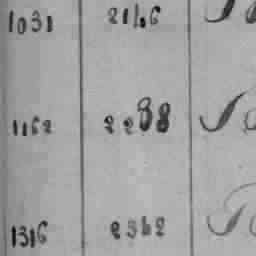 1031 2146
1162 2288
1316 2362